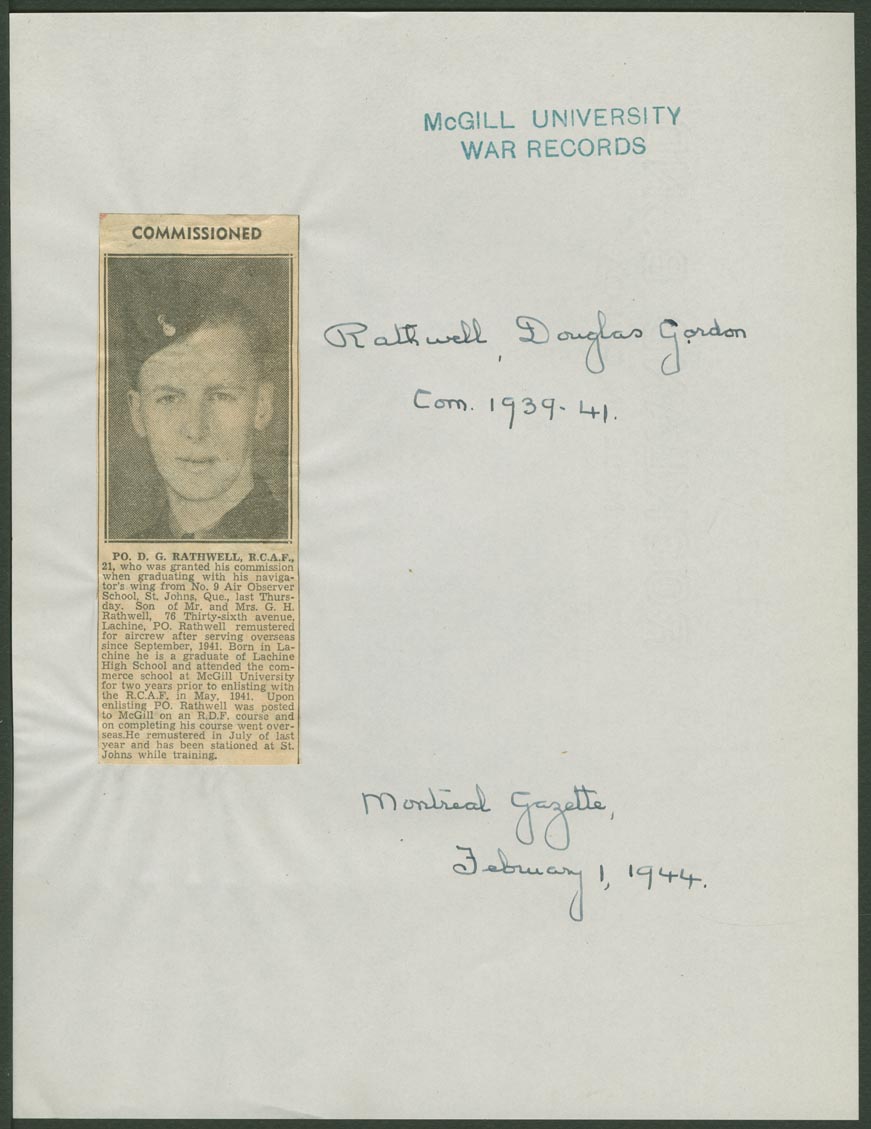 McGILL UNIVERSITY
WAR RECORDS
COMMISSIONED
Rathwell, Douglas Gordon
Com. 1939-41.
PO. D. G. RATHWELL, R.C.A.F.,
21, who was granted his commission
when graduating with his naviga-
tor's wing from No. 9 Air Observer
School, St. Johns, Que., last Thurs-
day. Son of Mr. and Mrs. G. H.
Rathwell, 76 Thirty-sixth avenue,
Lachine, PO. Rathwell remustered
for aircrew after serving overseas
since September, 1941. Born in La-
chine he is a graduate of Lachine
High School and attended the com-
merce school at McGill University
for two years prior to enlisting with
the R.C.A.F. in May, 1941. Upon
enlisting PO. Rathwell was posted
to McGill on an R.D.F. course and
on completing his course went over-
seas.He remustered in July of last
year and has been stationed at St.
Johns while training.
Montreal Gazette,
February 1, 1944.